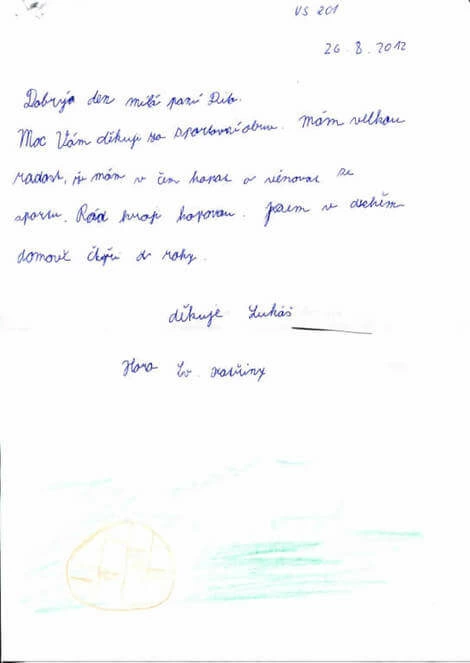 VS 201
26.8.2012
Dobrý den milá paní Dito.
Moc Vám děkuji za sportovní obuv. Mám velkou
radost, že mám v čem kopat a věnovat se
sportu. Rád hraji kopanou. Jsem v dechém
domově čtyři roky.
děkuje Lukáš
Hora Sv. Kateřiny